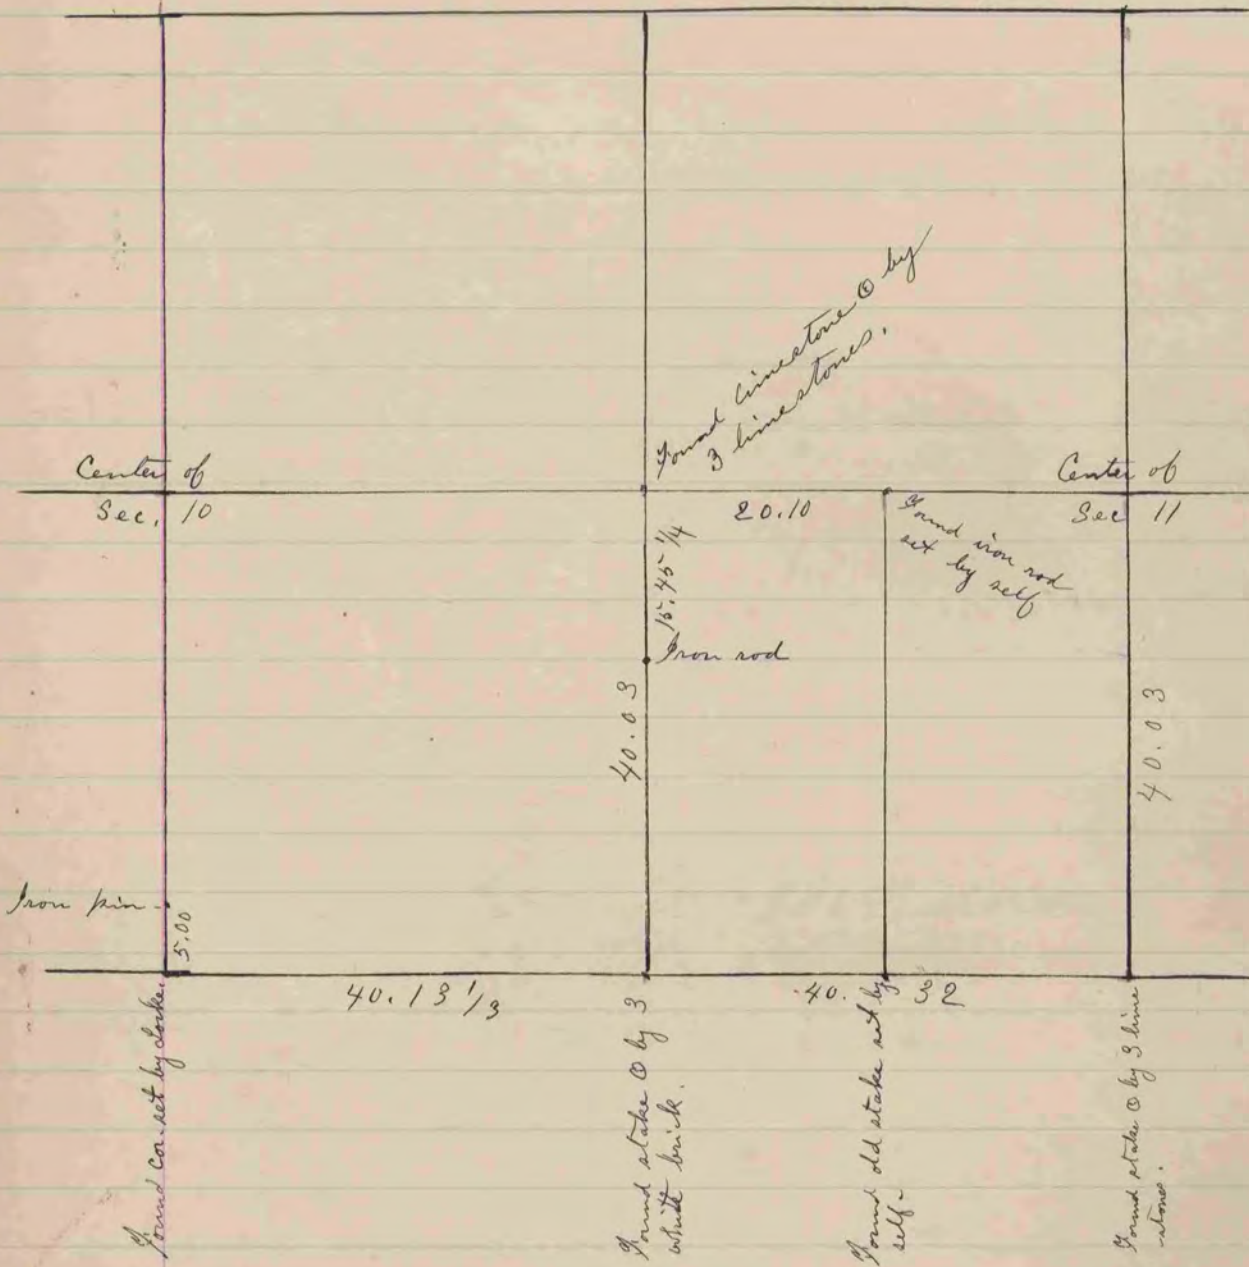 Found limestone ⊙ by
3 limestones.
Center of
Sec. 10
20.10
Center of
Sec 11
Found iron rod
set by self
15.45 1/4
Iron rod
40.03
40.03
Iron pin
5.00
40.13 1/3
40. 32
Found cor. set by Locke.
Found stake ⊙ by 3
white brick.
Found old stake set by
self.
Found stake ⊙ by 3 lime
-stones.